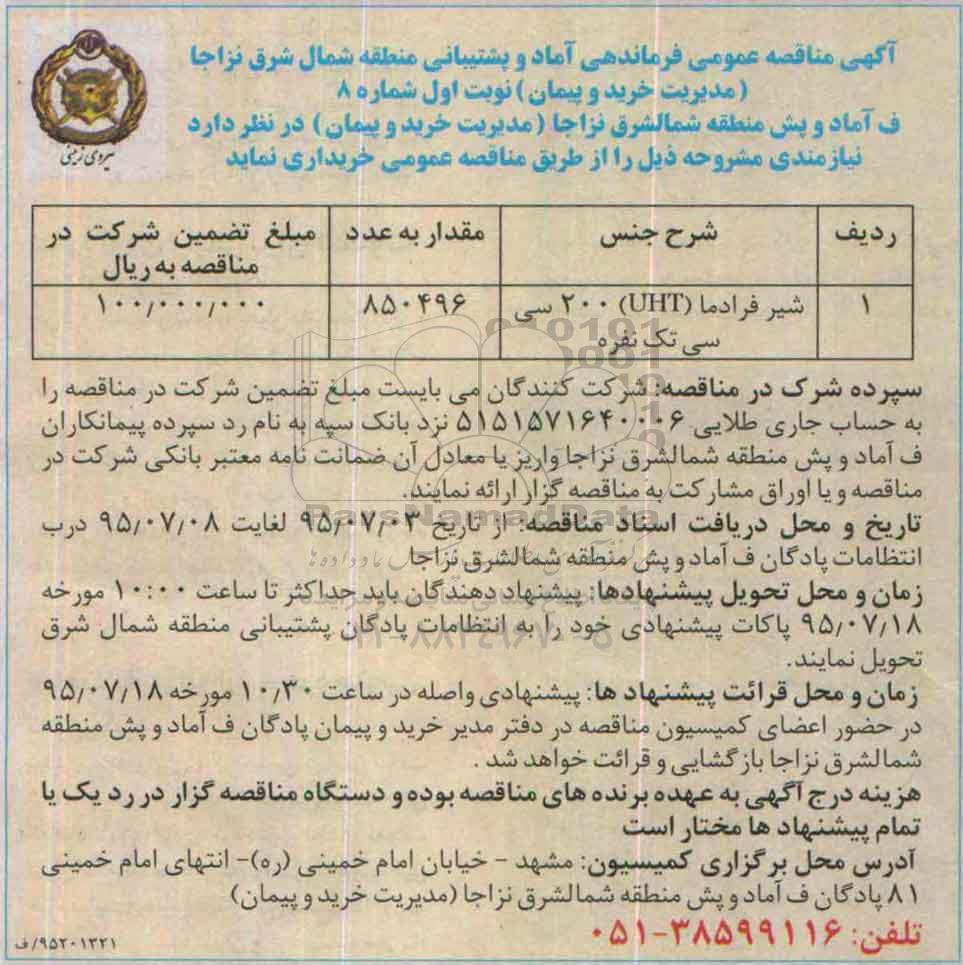 آگهی مناقصه عمومی فرماندهی آماد و پشتیبانی منطقه شمال شرق نزاجا
(مدیریت خرید و پیمان) نوبت اول شماره ۸
ف آماد و پش منطقه شمالشرق نزاجا (مدیریت خرید و پیمان) در نظر دارد
نیازمندی مشروحه ذیل را از طریق مناقصه عمومی خریداری نماید
نیروی زمینی
ردیف شرح جنس مقدار به عدد مبلغ تضمین شرکت در
مناقصه به ریال
۱ شیر فرادما (UHT) ۲۰۰ سی ۸۵۰۴۹۶ ۱۰۰٫۰۰۰٫۰۰۰
سی تک نفره
سپرده شرک در مناقصه: شرکت کنندگان می بایست مبلغ تضمین شرکت در مناقصه را
به حساب جاری طلایی ۵۱۵۱۵۷۱۶۴۰۰۰۶ نزد بانک سپه به نام رد سپرده پیمانکاران
ف آماد و پش منطقه شمالشرق نزاجا واریز یا معادل آن ضمانت نامه معتبر بانکی شرکت در
مناقصه و یا اوراق مشارکت به مناقصه گزار ارائه نمایند.
تاریخ و محل دریافت اسناد مناقصه: از تاریخ ۹۵/۰۷/۰۳ لغایت ۹۵/۰۷/۰۸ درب
انتظامات پادگان ف آماد و پش منطقه شمالشرق نزاجا
زمان و محل تحویل پیشنهادها: پیشنهاد دهندگان باید حداکثر تا ساعت ۱۰:۰۰ مورخه
۹۵/۰۷/۱۸ پاکات پیشنهادی خود را به انتظامات پادگان پشتیبانی منطقه شمال شرق
تحویل نمایند.
زمان و محل قرائت پیشنهاد ها: پیشنهادی واصله در ساعت ۱۰٫۳۰ مورخه ۹۵/۰۷/۱۸
در حضور اعضای کمیسیون مناقصه در دفتر مدیر خرید و پیمان پادگان ف آماد و پش منطقه
شمالشرق نزاجا بازگشایی و قرائت خواهد شد .
هزینه درج آگهی به عهده برنده های مناقصه بوده و دستگاه مناقصه گزار در رد یک یا
تمام پیشنهاد ها مختار است
آدرس محل برگزاری کمیسیون: مشهد - خیابان امام خمینی (ره)- انتهای امام خمینی
۸۱ پادگان ف آماد و پش منطقه شمالشرق نزاجا (مدیریت خرید و پیمان)
تلفن: ۳۸۵۹۹۱۱۶-۰۵۱
۹۵۲۰۱۳۲۱/ف
ParsNamadData